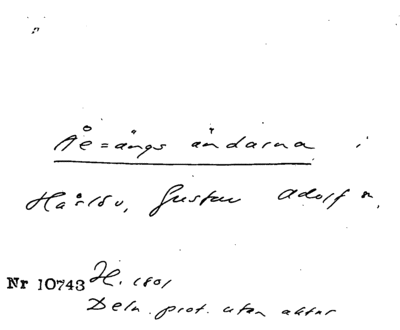 Åe=ängs ändarna i
Härlöv, Gustav Adolf n.
Nr 10743 H. 1801
Deln. prot. utan aktnr